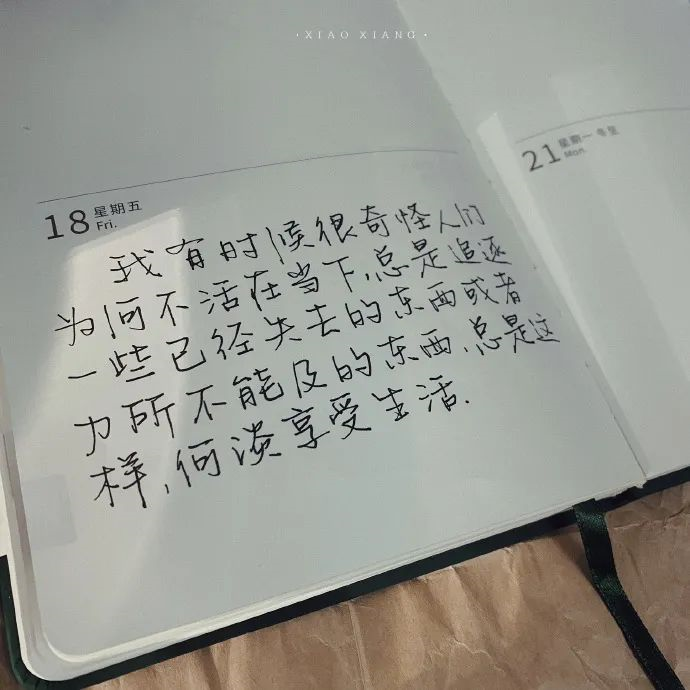 ·XIAO XIANG·
18 星期五
Fri.
21 星期一 冬至
Mon.
我有时候很奇怪人们
为何不活在当下,总是追逐
一些已经失去的东西或者
力所不能及的东西,总是这
样,何谈享受生活.